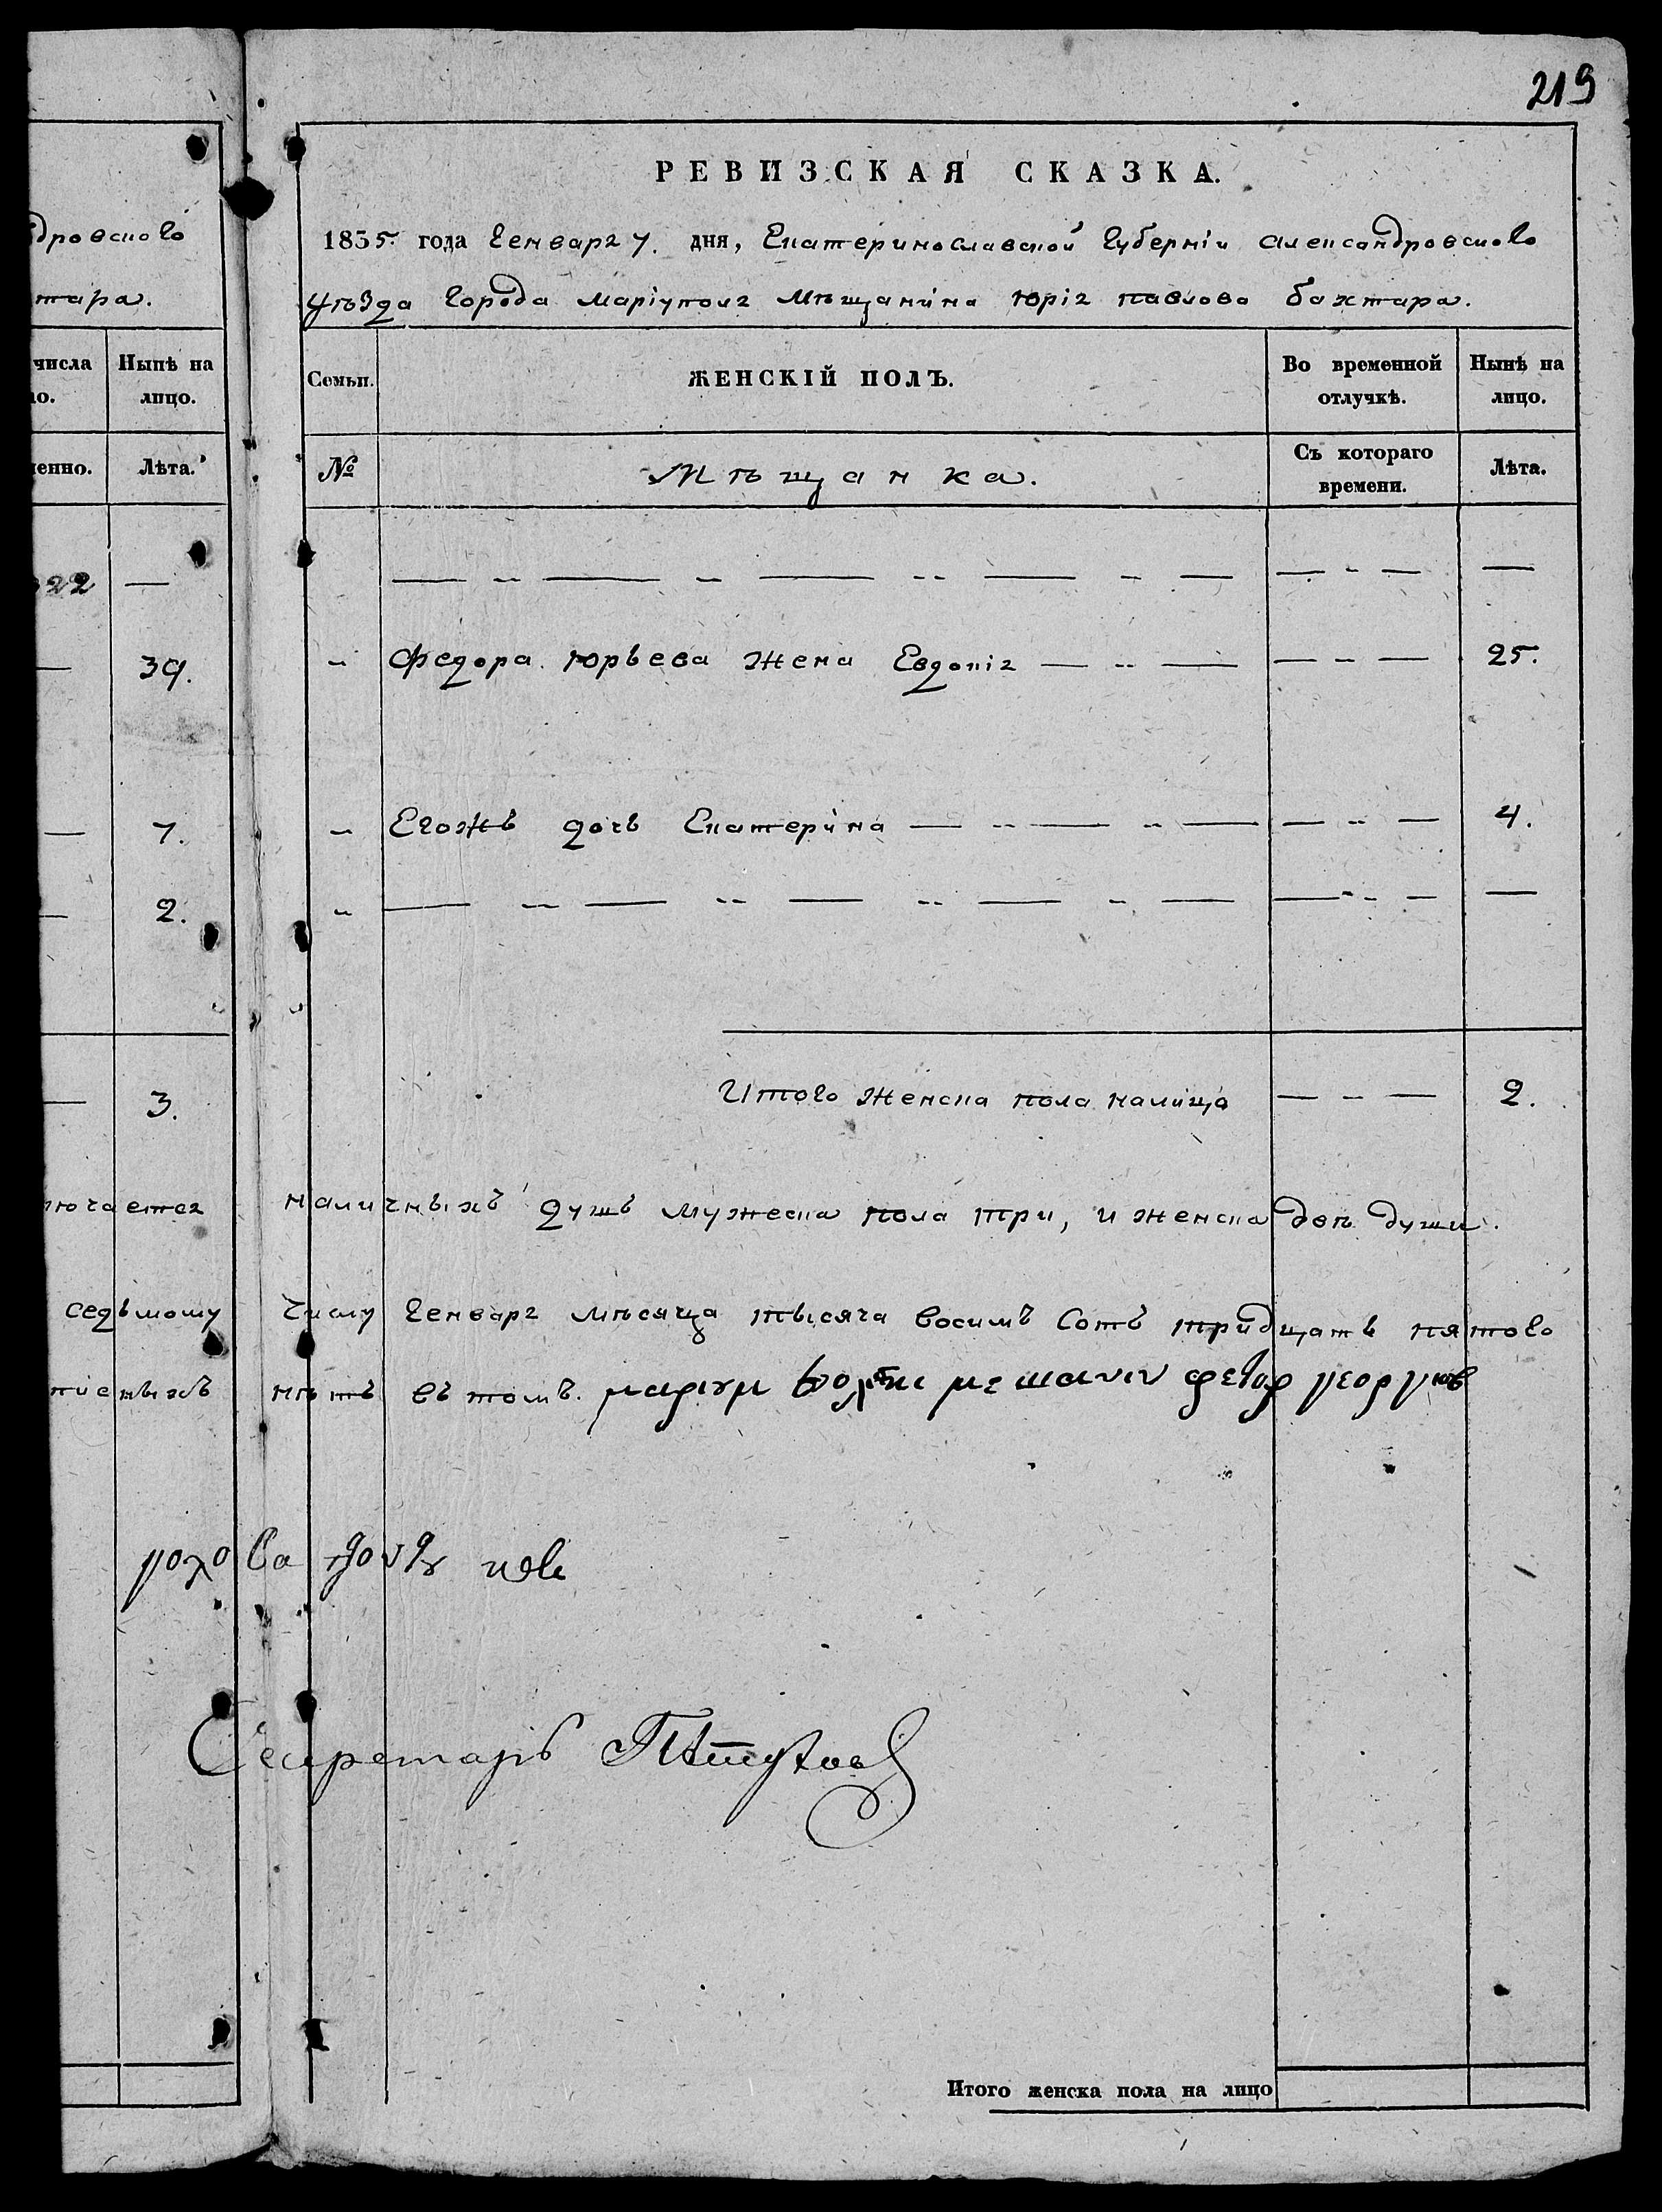 219
РЕВИЗСКАЯ СКАЗКА.
1835. года Генваря 7. дня, Екатеринославской Губерніи Александровского
уѣзда Города Маріуполя Мѣщанина Юрія Павлова Бахтара.
дровского
тара.
числа
Нынѣ на лицо.
ло.
Семьи.
ЖЕНСКІЙ ПОЛЪ.
Во временной отлучкѣ.
Нынѣ на лицо.
Лѣта.
№
Мѣщанка.
Съ котораго времени.
Лѣта.
22 —
— " — " — " — " — — " — —
— 39.
" Федора Юрьева жена Евдокія — " — — " — 25.
— 7.
" Егожъ дочь Екатерина — " — " — — " — 4.
— 2.
" — " — " — " — " — — " — —
— 3.
Итого женска пола налицо — " — 2.
ючается наличныхъ душъ мужеска пола три, и женска двѣ души.
седьмому числу Генваря мѣсяца тысяча восимъ сотъ тридцать пятого
нѣтъ въ томъ. μαριυμ μεшανιν φεδορ γεοργ
Секретарь
Итого женска пола на лицо